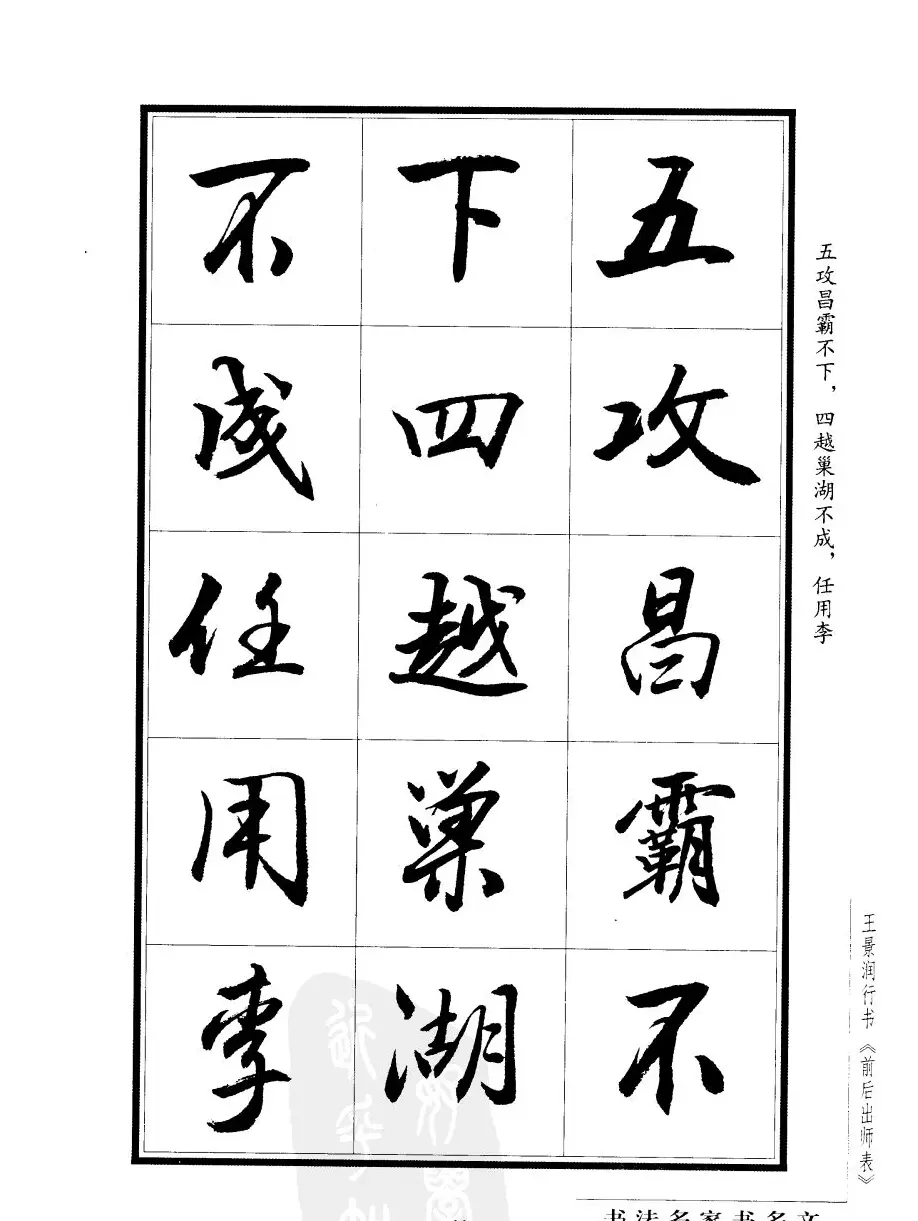 五攻昌霸不
下四越巢湖
不成任用李
五攻昌霸不下，四越巢湖不成，任用李
王景润行书《前后出师表》
书法名家书名文